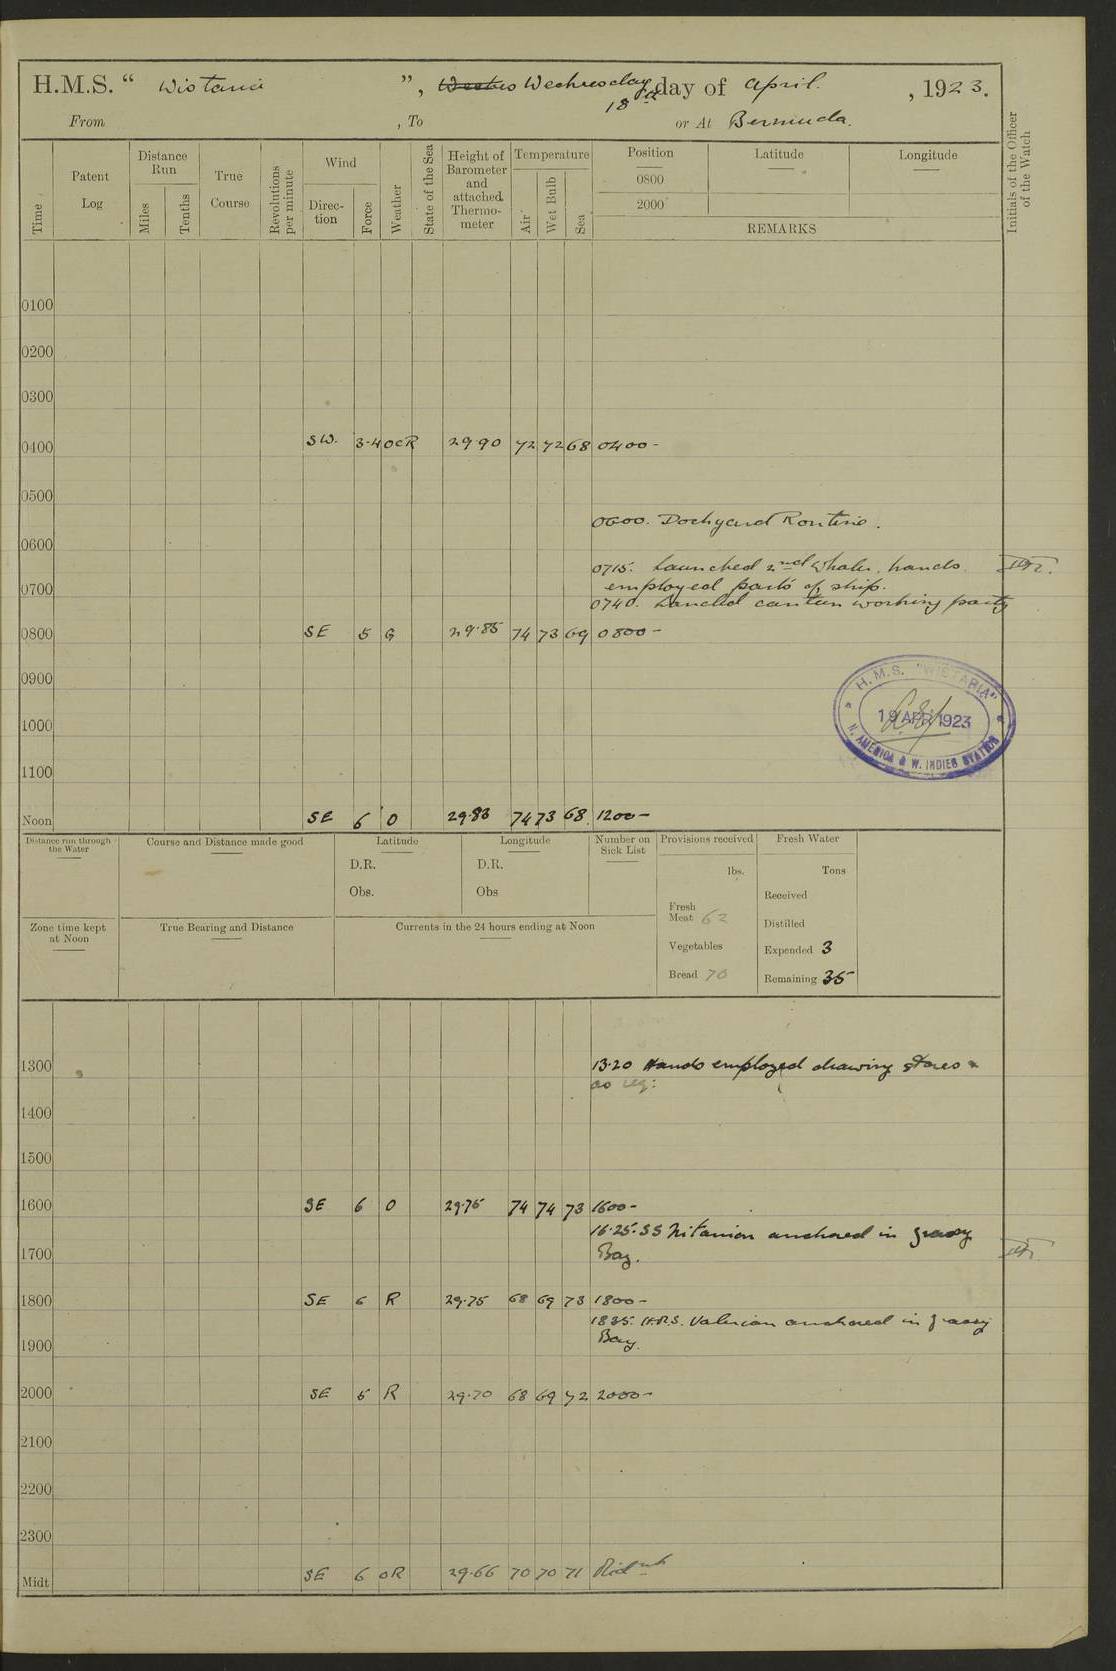 H.M.S. “ Wistaria ”, Wednesday day of April. , 1923.
18th
From , To or At Bermuda.
Initials of the Officer of the Watch
Time
Patent Log
Distance Run
Miles
Tenths
True Course
Revolutions per minute
Wind
Direction
Force
Weather
State of the Sea
Height of Barometer and attached Thermometer
Temperature
Air
Wet Bulb
Sea
Position Latitude Longitude
0800
2000
REMARKS
0100
0200
0300
0400 SW. 3-4 OCR 29.90 72 72 68 0400-
0500
0600. Dockyard Routine.
0600
0715. Launched 2nd Whaler, hands
employed parts of ship.
0700
0740. Landed canteen working party
0800 SE 5 G 29.85 74 73 69 0800-
0900
H.M.S. "WISTARIA"
19 APR 1923
N. AMERICA & W. INDIES STATION
1000
1100
Noon SE 6 O 29.83 74 73 68 1200-
Distance run through the Water
Course and Distance made good
Latitude
D.R.
Obs.
Longitude
D.R.
Obs
Number on Sick List
Provisions received
lbs.
Fresh Meat 62
Vegetables
Bread 70
Fresh Water
Tons
Received
Distilled
Expended 3
Remaining 35
Zone time kept at Noon
True Bearing and Distance
Currents in the 24 hours ending at Noon
1300 13.20 Hands employed drawing stores &
as req:
1400
1500
1600 SE 6 O 29.75 74 74 73 1600-
16.25. SS anchored in Grassy
Bay.
1700
1800 SE 6 R 29.75 68 69 73 1800-
1835. H.M.S. Valerian anchored in Grassy
Bay.
1900
2000 SE 6 R 29.70 68 69 72 2000-
2100
2200
2300
Midt SE 6 OR 29.66 70 70 71 Midnt